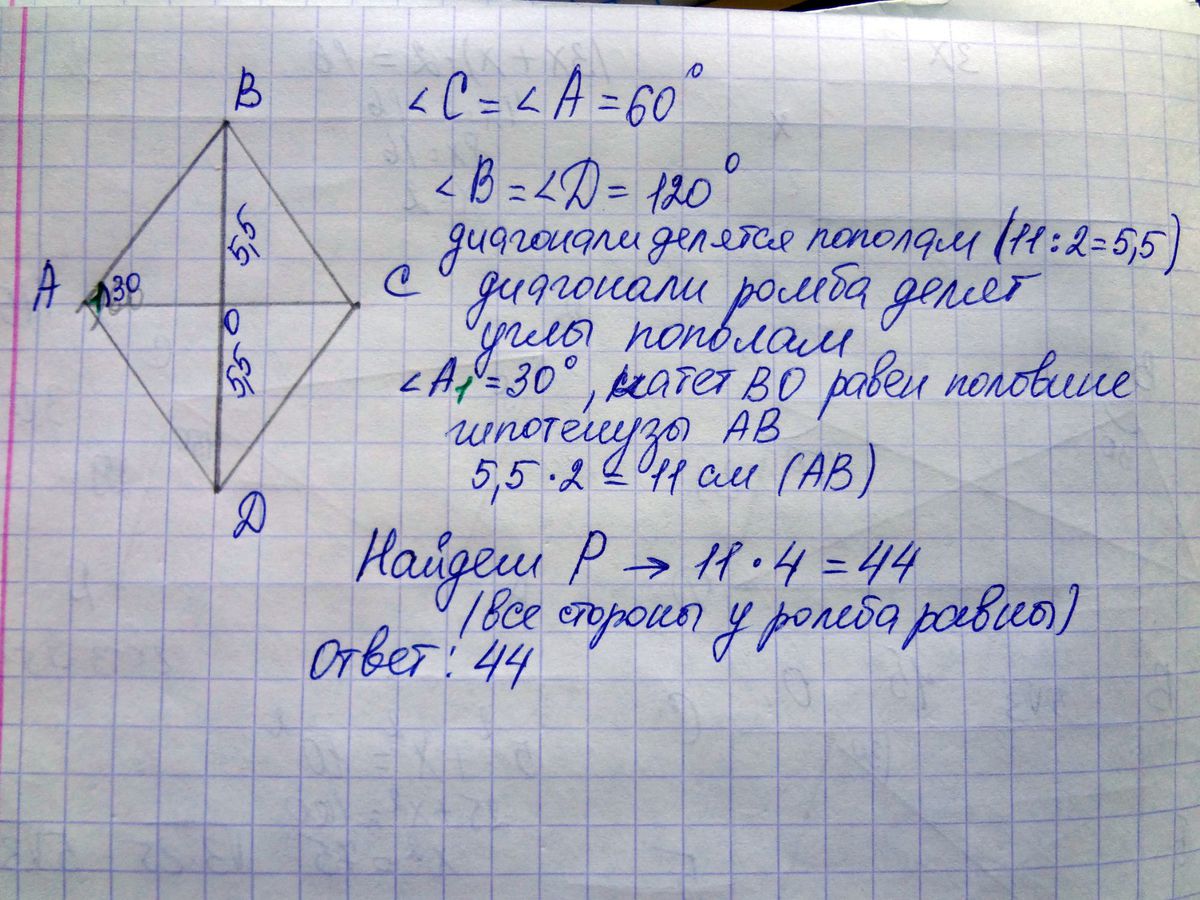 B
∠C = ∠A = 60°
∠B = ∠D = 120°
диагонали делятся пополам (11:2=5,5)
5,5
A
30
C
диагонали ромба делят
O
углы пополам
5,5
∠A1 = 30°, катет BO равен половине
гипотенузы AB
5,5 · 2 = 11 см (AB)
D
Найдем P → 11 · 4 = 44
(все стороны у ромба равны)
Ответ: 44